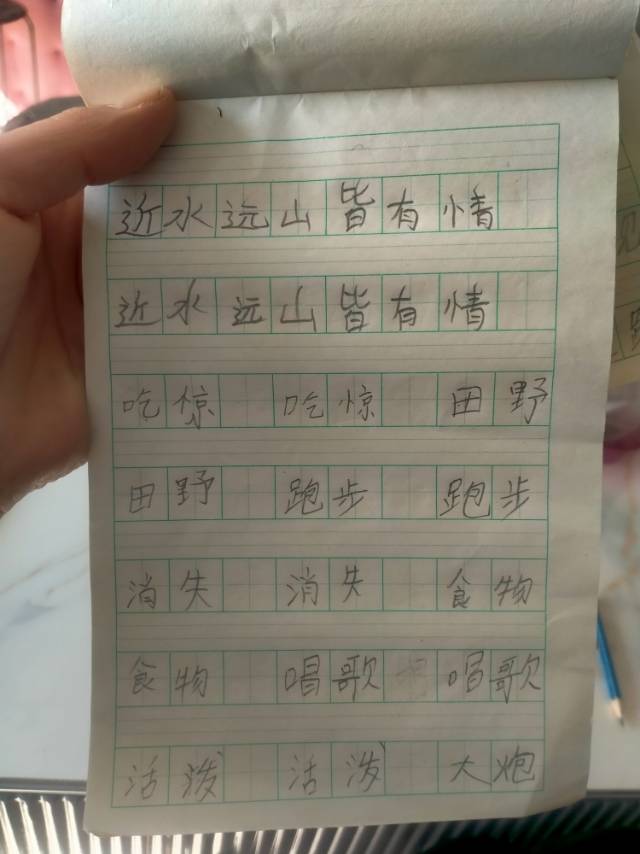 近水远山皆有情
近水远山皆有情
吃惊 吃惊 田野
田野 跑步 跑步
消失 消失 食物
食物 唱歌 唱歌
活泼 活泼 大炮